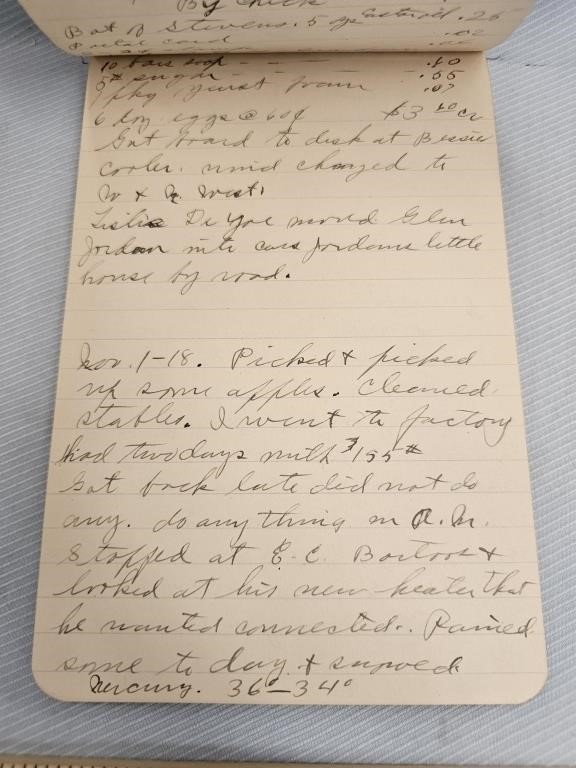 By check
Bot of Stevens. 5 gas .25
Postal card .02
10 bars soap - - - .50
5# sugar - - .55
1 pkg yeast foam .07
6 doz. eggs @ 60¢ $3
Got board to desk at Bessie
cooler. wind changed to
N + N. West.
Leslie De Yoe moved Glen
Jordan into Jordans little
house by road.
Nov. 1-18. Picked + picked
up some apples. Cleaned
stables. I went to factory
had two days milk 155#
Got back late did not do
any. do anything in P.M.
Stopped at E. C. +
looked at his new heater that
he wanted connected. Rained
some to day + snowed
Mercury. 36°-34°